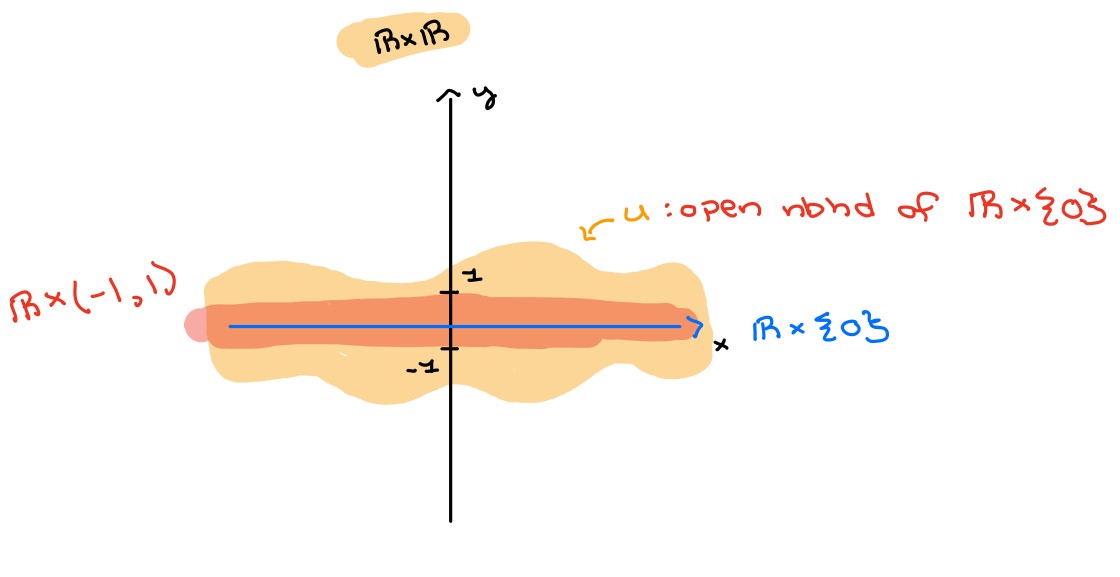 ℝ×ℝ
y
u : open nbhd of ℝ×{0}
1
ℝ×(-1,1)
ℝ×{0}
x
-1